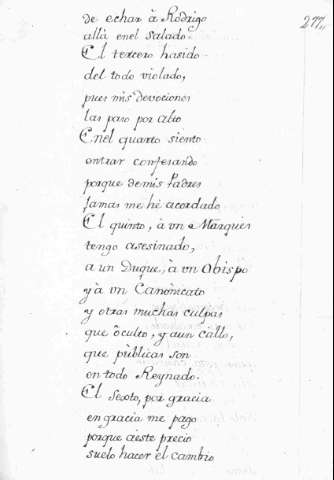 277,,
de echar à Rodrigo
allà enel salado.
El tercero hasido
del todo violado,
pues mis devociones
las paso por alto
Enel quarto siento
entrar confesando
porque demis Padres
Jamas me hè acordado
El quinto, à vn Marques
tengo asesinado,
a un Duque, à vn Obispo
yà vn Canònicato
y otras muchas culpas
que òculto, y aun callo,
que pùblicas son
en todo Reynado.
El Sexto, por gracia
en gracia me pago
porque aeste precio
suelo hacer el cambio